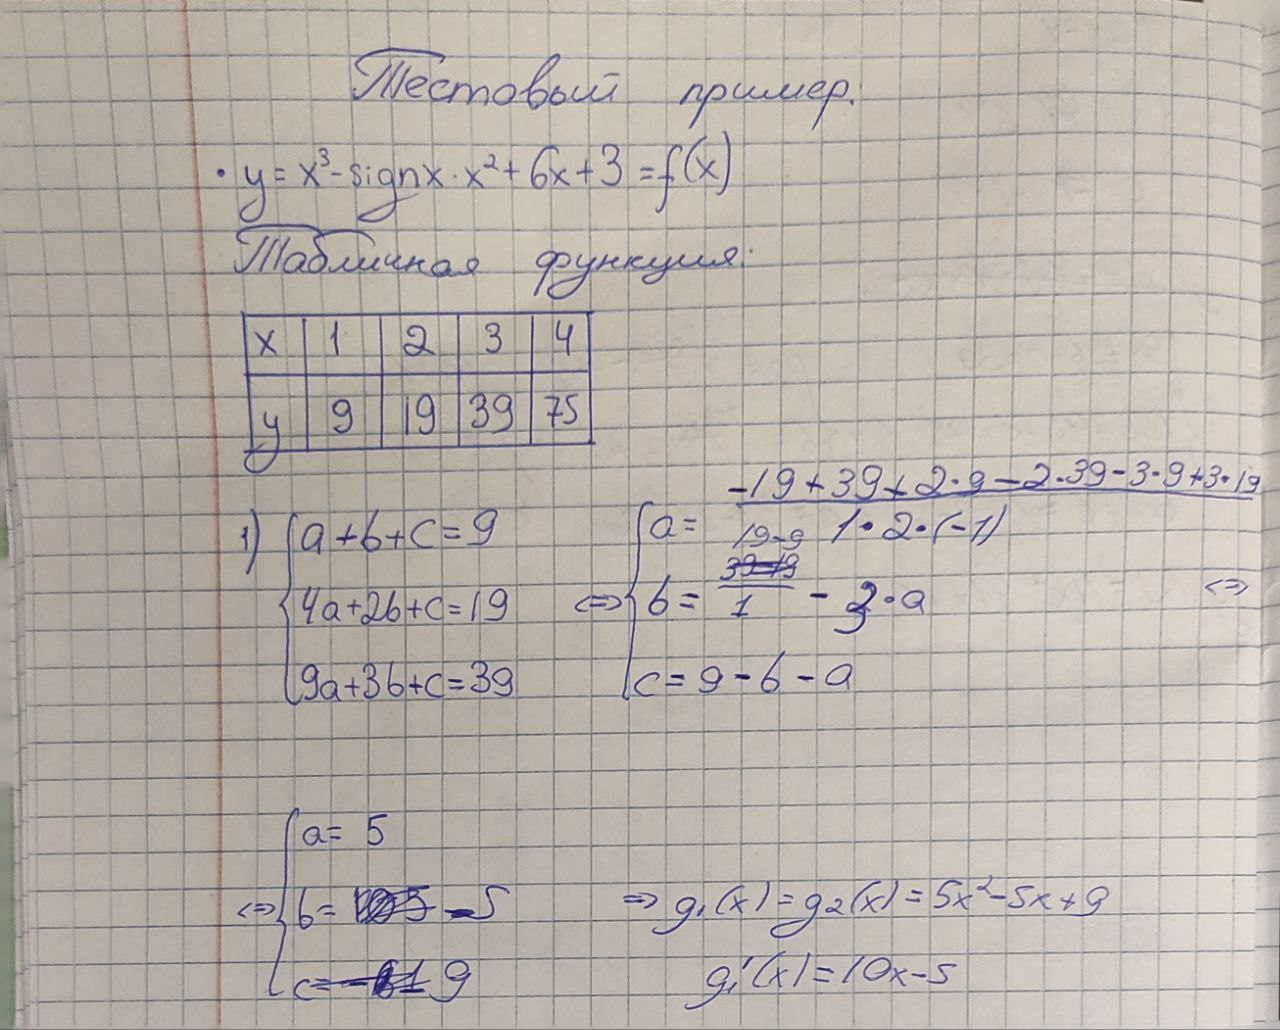 Тестовый пример.
· y = x³ - signx · x² + 6x + 3 = f(x)
Табличная функция:
x 1 2 3 4
y 9 19 39 75
1) { a + b + c = 9
4a + 2b + c = 19
9a + 3b + c = 39
⇔ { a = (-19 + 39 + 2·9 - 2·39 - 3·9 + 3·19) / (1·2·(-1))
b = (19-9) / 1 - 3·a ⇔
c = 9 - b - a
⇔ { a = 5
b = -5
c = 9
⇒ g₁(x) = g₂(x) = 5x² - 5x + 9
g₁'(x) = 10x - 5